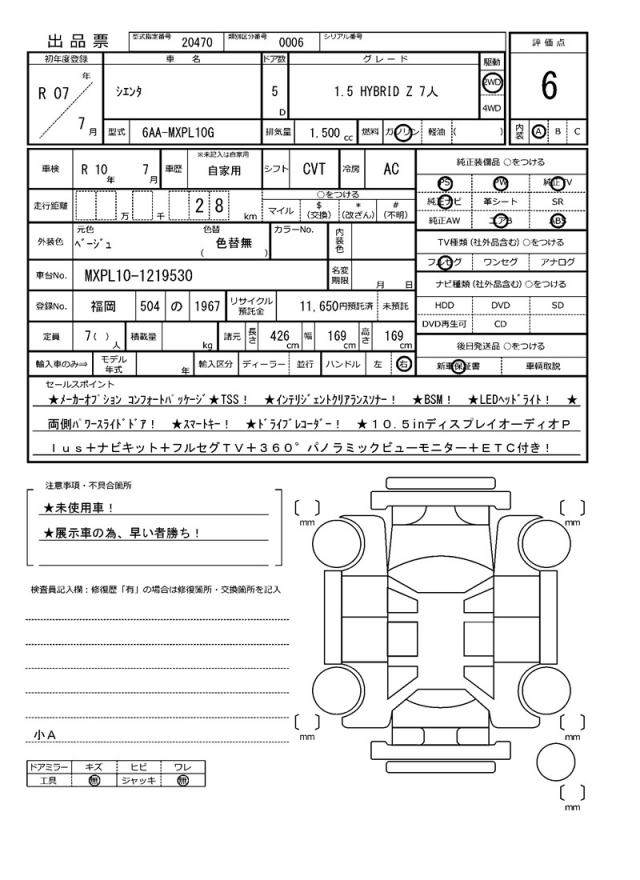 出品票 型式指定番号 20470 類別区分番号 0006 シリアル番号
評価点
6
初年度登録 車名 ドア数 グレード 駆動
R 07 年 7 月 シエンタ 5 D 1.5 HYBRID Z 7人 2WD 4WD
型式 6AA-MXPL10G 排気量 1,500 cc 燃料 ガソリン 軽油 ( )
内装 A B C
車検 R 10 年 7 月 車歴 ※未記入は自家用 自家用 シフト CVT 冷房 AC
走行距離 万 千 2 8 km ○をつける マイル $(交換) *(改ざん) #(不明)
外装色 元色 ベージュ 色替 色替無 ( ) カラーNo. 内装色
車台No. MXPL10-1219530 名変期限 月 日
登録No. 福岡 504 の 1967 リサイクル預託金 11,650円預託済 未預託
定員 7( )人 積載量 kg 諸元 長さ 426 cm 幅 169 cm 高さ 169 cm
輸入車のみ⇒ モデル年式 年 輸入区分 ディーラー 並行 ハンドル 左 右
純正装備品 ○をつける
PS PW 純正TV
純正ナビ 革シート SR
純正AW エアB ABS
TV種類(社外品含む)○をつける
フルセグ ワンセグ アナログ
ナビ種類(社外品含む)○をつける
HDD DVD SD
DVD再生可 CD
後日発送品 ○をつける
新車保証書 車輌取説
セールスポイント
★メーカーオプション コンフォートパッケージ★TSS! ★インテリジェントクリアランスソナー! ★BSM! ★LEDヘッドライト! ★
両側パワースライドドア! ★スマートキー! ★ドライブレコーダー! ★10.5inディスプレイオーディオP
lus+ナビキット+フルセグTV+360°パノラミックビューモニター+ETC付き!
注意事項・不具合箇所
★未使用車!
★展示車の為、早い者勝ち!
検査員記入欄:修復歴「有」の場合は修復箇所・交換箇所を記入
小A
ドアミラー キズ ヒビ ワレ
工具 無 ジャッキ 無
mm
mm
mm
mm
mm